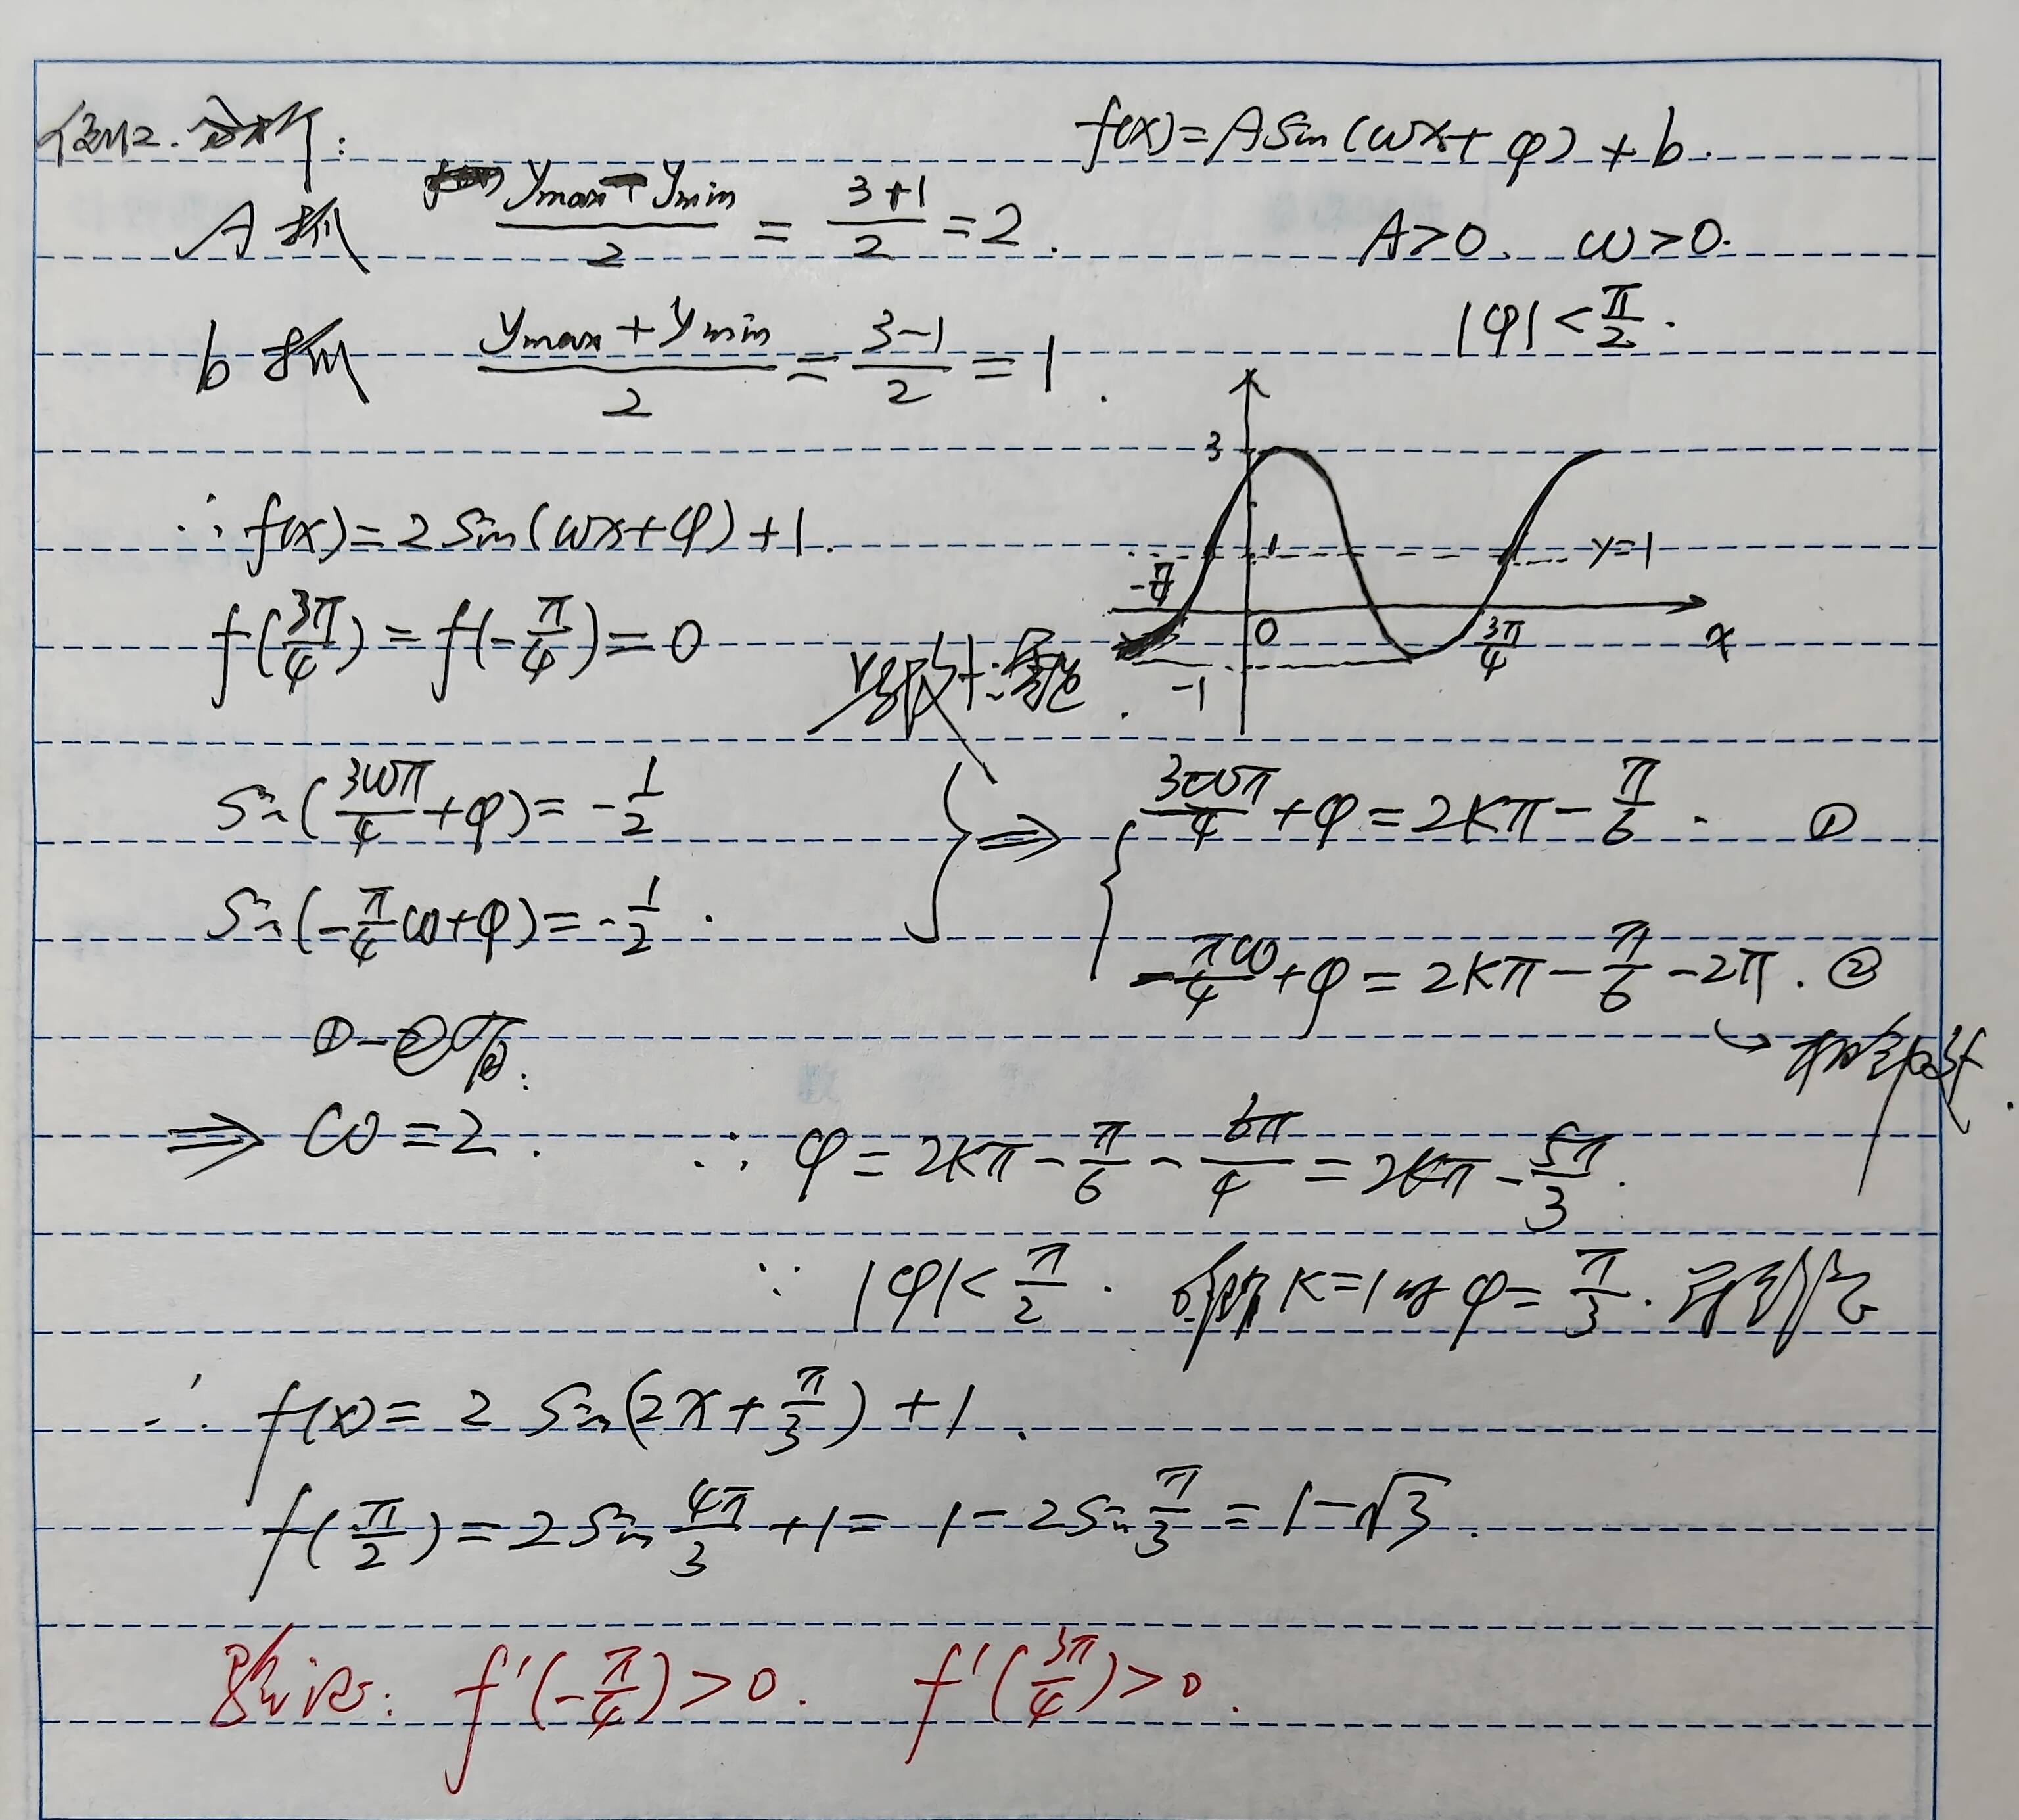 例2. 分析:
f(x)=Asin(ωx+φ)+b.
A>0. ω>0.
|φ|<π/2.
A振 (ymax-ymin)/2 = (3+1)/2 = 2.
b振 (ymax+ymin)/2 = (3-1)/2 = 1.
3
1
y=1
-π/4
0
3π/4
x
-1
∴ f(x)=2sin(ωx+φ)+1.
f(3π/4)=f(-π/4)=0
sin(3ωπ/4+φ)=-1/2
sin(-π/4ω+φ)=-1/2.
⇒
3ωπ/4+φ=2kπ-π/6. ①
-πω/4+φ=2kπ-π/6-2π. ②
①-②可得:
⇒ ω=2.
∴ φ=2kπ-π/6-6π/4=2kπ-5π/3.
∵ |φ|<π/2. k=1时 φ=π/3.
∴ f(x)=2sin(2x+π/3)+1.
f(π/2)=2sin4π/3+1=1-2sinπ/3=1-√3.
验证: f'(-π/4)>0. f'(3π/4)>0.